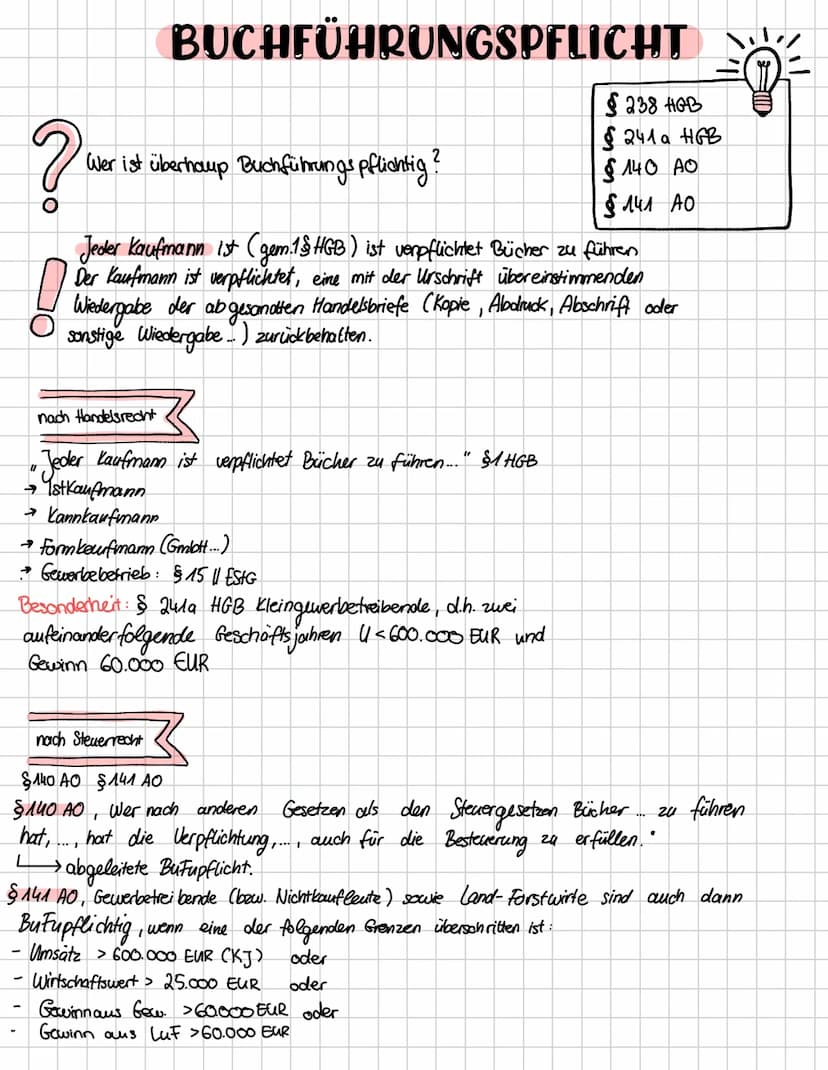 BUCHFÜHRUNGSPFLICHT
§ 238 HGB
§ 241a HGB
§ 140 AO
§ 141 AO
? Wer ist überhaup Buchführungspflichtig?
Jeder Kaufmann ist (gem. 1§ HGB) ist verpflichtet Bücher zu führen
! Der Kaufmann ist verpflichtet, eine mit der Urschrift übereinstimmenden
Wiedergabe der abgesandten Handelsbriefe (Kopie, Abdruck, Abschrift oder
sonstige Wiedergabe...) zurückbehalten.
nach Handelsrecht
"Jeder Kaufmann ist verpflichtet Bücher zu führen..." §1 HGB
→ Istkaufmann
→ Kannkaufmann
→ Formkaufmann (GmbH...)
→ Gewerbebetrieb: § 15 II EStG
Besonderheit: § 241a HGB Kleingewerbetreibende, d.h. zwei
aufeinanderfolgende Geschäftsjahren U < 600.000 EUR und
Gewinn 60.000 EUR
nach Steuerrecht
§ 140 AO § 141 AO
§ 140 AO, Wer nach anderen Gesetzen als den Steuergesetzen Bücher ... zu führen
hat, ..., hat die Verpflichtung, ..., auch für die Besteuerung zu erfüllen."
↳ abgeleitete BuFupflicht.
§ 141 AO, Gewerbetreibende (bzw. Nichtkaufleute) sowie Land-Forstwirte sind auch dann
BuFupflichtig, wenn eine der folgenden Grenzen überschritten ist:
- Umsatz > 600.000 EUR (KJ) oder
- Wirtschaftswert > 25.000 EUR oder
- Gewinn aus Gew. > 60.000 EUR oder
- Gewinn aus LuF > 60.000 EUR